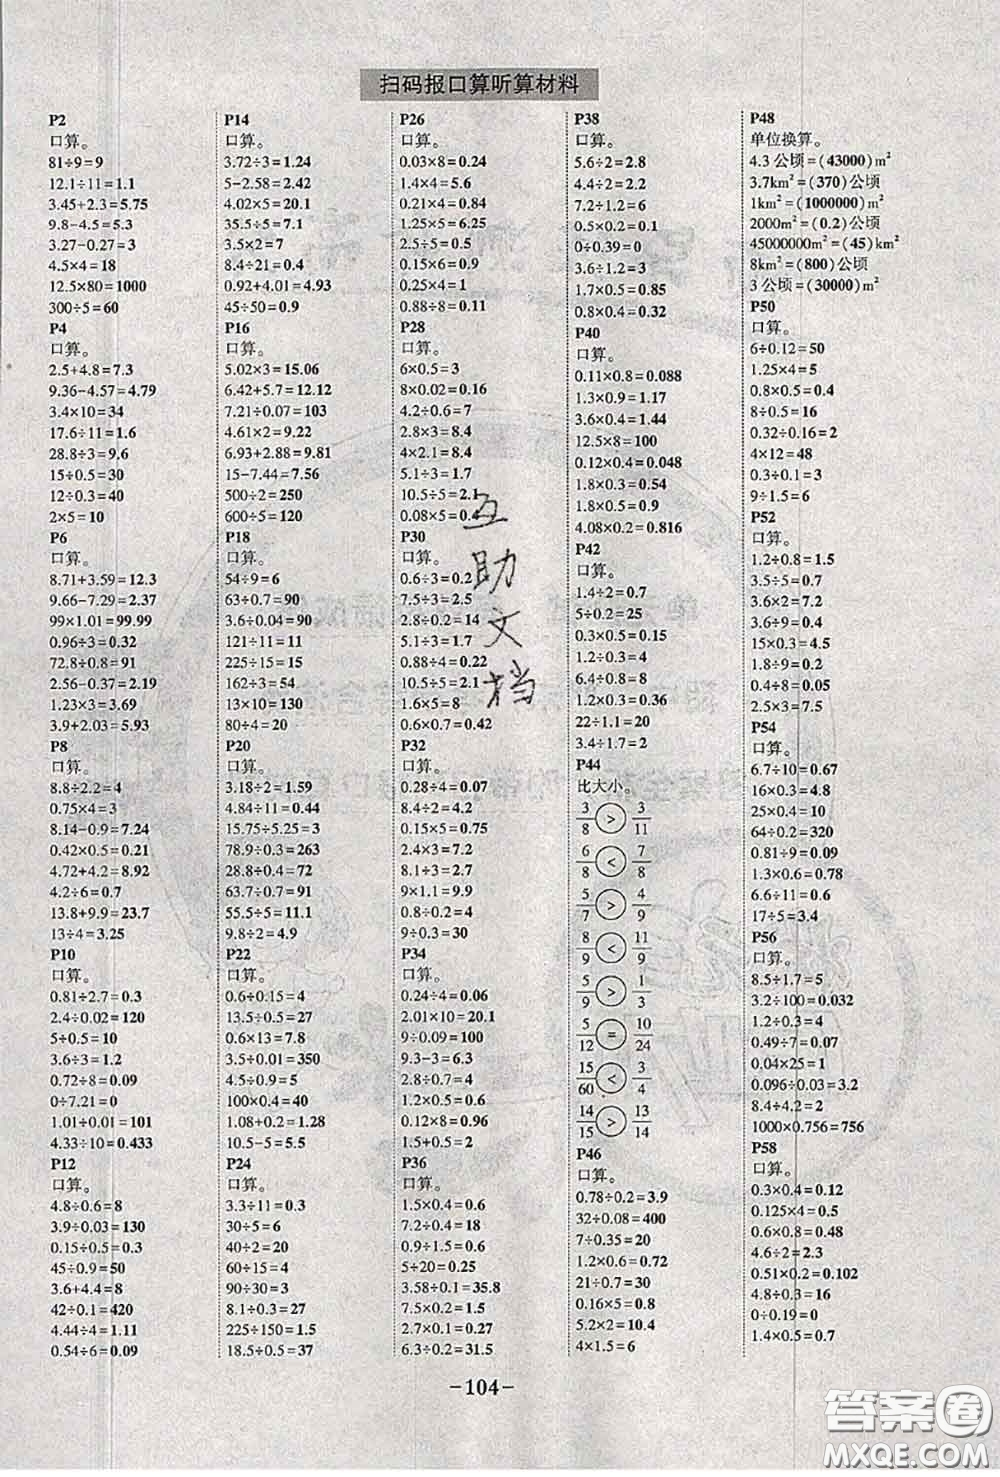 扫码报口算听算材料
P2
口算。
81÷9=9
12.1÷11=1.1
3.45+2.3=5.75
9.8-4.5=5.3
3.27-0.27=3
4.5×4=18
12.5×80=1000
300÷5=60
P4
口算。
2.5+4.8=7.3
9.36-4.57=4.79
3.4×10=34
17.6÷11=1.6
28.8÷3=9.6
15÷0.5=30
12÷0.3=40
2×5=10
P6
口算。
8.71+3.59=12.3
9.66-7.29=2.37
99×1.01=99.99
0.96÷3=0.32
72.8÷0.8=91
2.56-0.37=2.19
1.23×3=3.69
3.9+2.03=5.93
P8
口算。
8.8÷2.2=4
0.75×4=3
8.14-0.9=7.24
0.42×0.5=0.21
4.72+4.2=8.92
4.2÷6=0.7
13.8+9.9=23.7
13÷4=3.25
P10
口算。
0.81÷2.7=0.3
2.4÷0.02=120
5÷0.5=10
3.6÷3=1.2
0.72÷8=0.09
0÷7.21=0
1.01÷0.01=101
4.33÷10=0.433
P12
口算。
4.8÷0.6=8
3.9÷0.03=130
0.15÷0.5=0.3
45÷0.9=50
3.6+4.4=8
42÷0.1=420
4.44÷4=1.11
0.54÷6=0.09
P14
口算。
3.72÷3=1.24
5-2.58=2.42
4.02×5=20.1
35.5÷5=7.1
3.5×2=7
8.4÷21=0.4
0.92+4.01=4.93
45÷50=0.9
P16
口算。
5.02×3=15.06
6.42+5.7=12.12
7.21÷0.07=103
4.61×2=9.22
6.93+2.88=9.81
15-7.44=7.56
500÷2=250
600÷5=120
P18
口算。
54÷9=6
63÷0.7=90
3.6÷0.04=90
121÷11=11
225÷15=15
162÷3=54
13×10=130
80÷4=20
P20
口算。
3.18÷2=1.59
4.84÷0.11=44
15.75÷5.25=3
78.9÷0.3=263
28.8÷0.4=72
63.7÷0.7=91
55.5÷5=11.1
9.8÷2=4.9
P22
口算。
0.6÷0.15=4
13.5÷0.5=27
0.6×13=7.8
3.5÷0.01=350
4.5÷0.9=5
100×0.4=40
1.08+0.2=1.28
10.5-5=5.5
P24
口算。
3.3÷11=0.3
30÷5=6
40÷2=20
60÷15=4
90÷30=3
8.1÷0.3=27
225÷150=1.5
18.5÷0.5=37
P26
口算。
0.03×8=0.24
1.4×4=5.6
0.21×4=0.84
1.25×5=6.25
2.5÷5=0.5
0.25×4=1
0.88÷8=0.11
P28
口算。
6×0.5=3
8×0.02=0.16
4.2÷0.6=7
2.8×3=8.4
4×2.1=8.4
5.1÷3=1.7
10.5÷5=2.1
0.08×5=0.4
P30
口算。
0.6÷3=0.2
7.5÷3=2.5
2.8÷0.2=14
5.1÷3=1.7
0.88÷4=0.22
10.5÷5=2.1
1.6×5=8
0.6×0.7=0.42
P32
口算。
0.28÷4=0.07
8.4÷2=4.2
0.15×5=0.75
2.4×3=7.2
8.1÷3=2.7
9×1.1=9.9
0.8÷0.2=4
9÷0.3=30
P34
口算。
0.24÷4=0.06
2.01×10=20.1
9÷0.09=100
9.3-3=6.3
2×0.4=0.8
12×0.2=2.4
0.12×8=0.96
1.5+0.5=2
P36
口算。
1.5×0.4=0.6
7.2÷0.4=18
0.9÷1.5=0.6
5÷20=0.25
3.58÷0.1=35.8
7.5×0.2=1.5
2.7×0.1=0.27
6.3÷0.2=31.5
P38
口算。
5.6÷2=2.8
4.4÷2=2.2
7.2÷1.2=6
0.5×0.2=0.1
0÷0.39=0
3.6÷1.2=3
1.7×0.5=0.85
0.8×0.4=0.32
P40
口算。
0.11×0.8=0.088
1.3×0.9=1.17
3.6×0.4=1.44
12.5×8=100
0.12×0.4=0.048
1.8×0.3=0.54
1.8×0.5=0.9
4.08×0.2=0.816
P42
口算。
1.4÷2=0.7
5÷0.2=25
0.3×0.5=0.15
1.2÷0.3=4
6.4÷0.8=8
1.2×0.3=0.36
22÷1.1=20
3.4÷1.7=2
P44
比大小。
3/8 > 3/11
6/8 < 7/8
5/7 > 4/9
8/9 < 11/9
5/9 > 1/3
5/12 = 10/24
15/60 < 3/4
14/15 > 13/14
P46
口算。
0.78÷0.2=3.9
32÷0.08=400
7÷0.35=20
1.2×0.6=0.72
21÷0.7=30
0.16×5=0.8
5.2×2=10.4
4×1.5=6
P48
单位换算。
4.3公顷=(43000)m²
3.7km²=(370)公顷
1km²=(1000000)m²
2000m²=(0.2)公顷
45000000m²=(45)km²
8km²=(800)公顷
3公顷=(30000)m²
P50
口算。
6÷0.12=50
1.25×4=5
0.8×0.5=0.4
8÷0.5=16
0.32÷0.16=2
4×12=48
0.3÷0.1=3
9÷1.5=6
P52
口算。
1.2÷0.8=1.5
3.5÷5=0.7
3.6÷9=0.4
15×0.3=4.5
1.8÷9=0.2
0.4+0.8=1.2
2.5×3=7.5
P54
口算。
6.7÷10=0.67
16×0.3=4.8
25×0.4=10
64÷0.2=320
0.81÷9=0.09
1.3×0.6=0.78
6.6÷11=0.6
17÷5=3.4
P56
口算。
8.5÷1.7=5
3.2÷100=0.032
1.2÷0.3=4
0.49÷7=0.07
0.04×25=1
0.096÷0.03=3.2
8.4÷4.2=2
1000×0.756=756
P58
口算。
0.3×0.4=0.12
0.125×4=0.5
0.6×0.8=0.48
4.6÷2=2.3
0.51×0.2=0.102
4.8÷0.3=16
0÷0.19=0
1.4×0.5=0.7
互助文档
-104-
答案圈
MXQE.COM